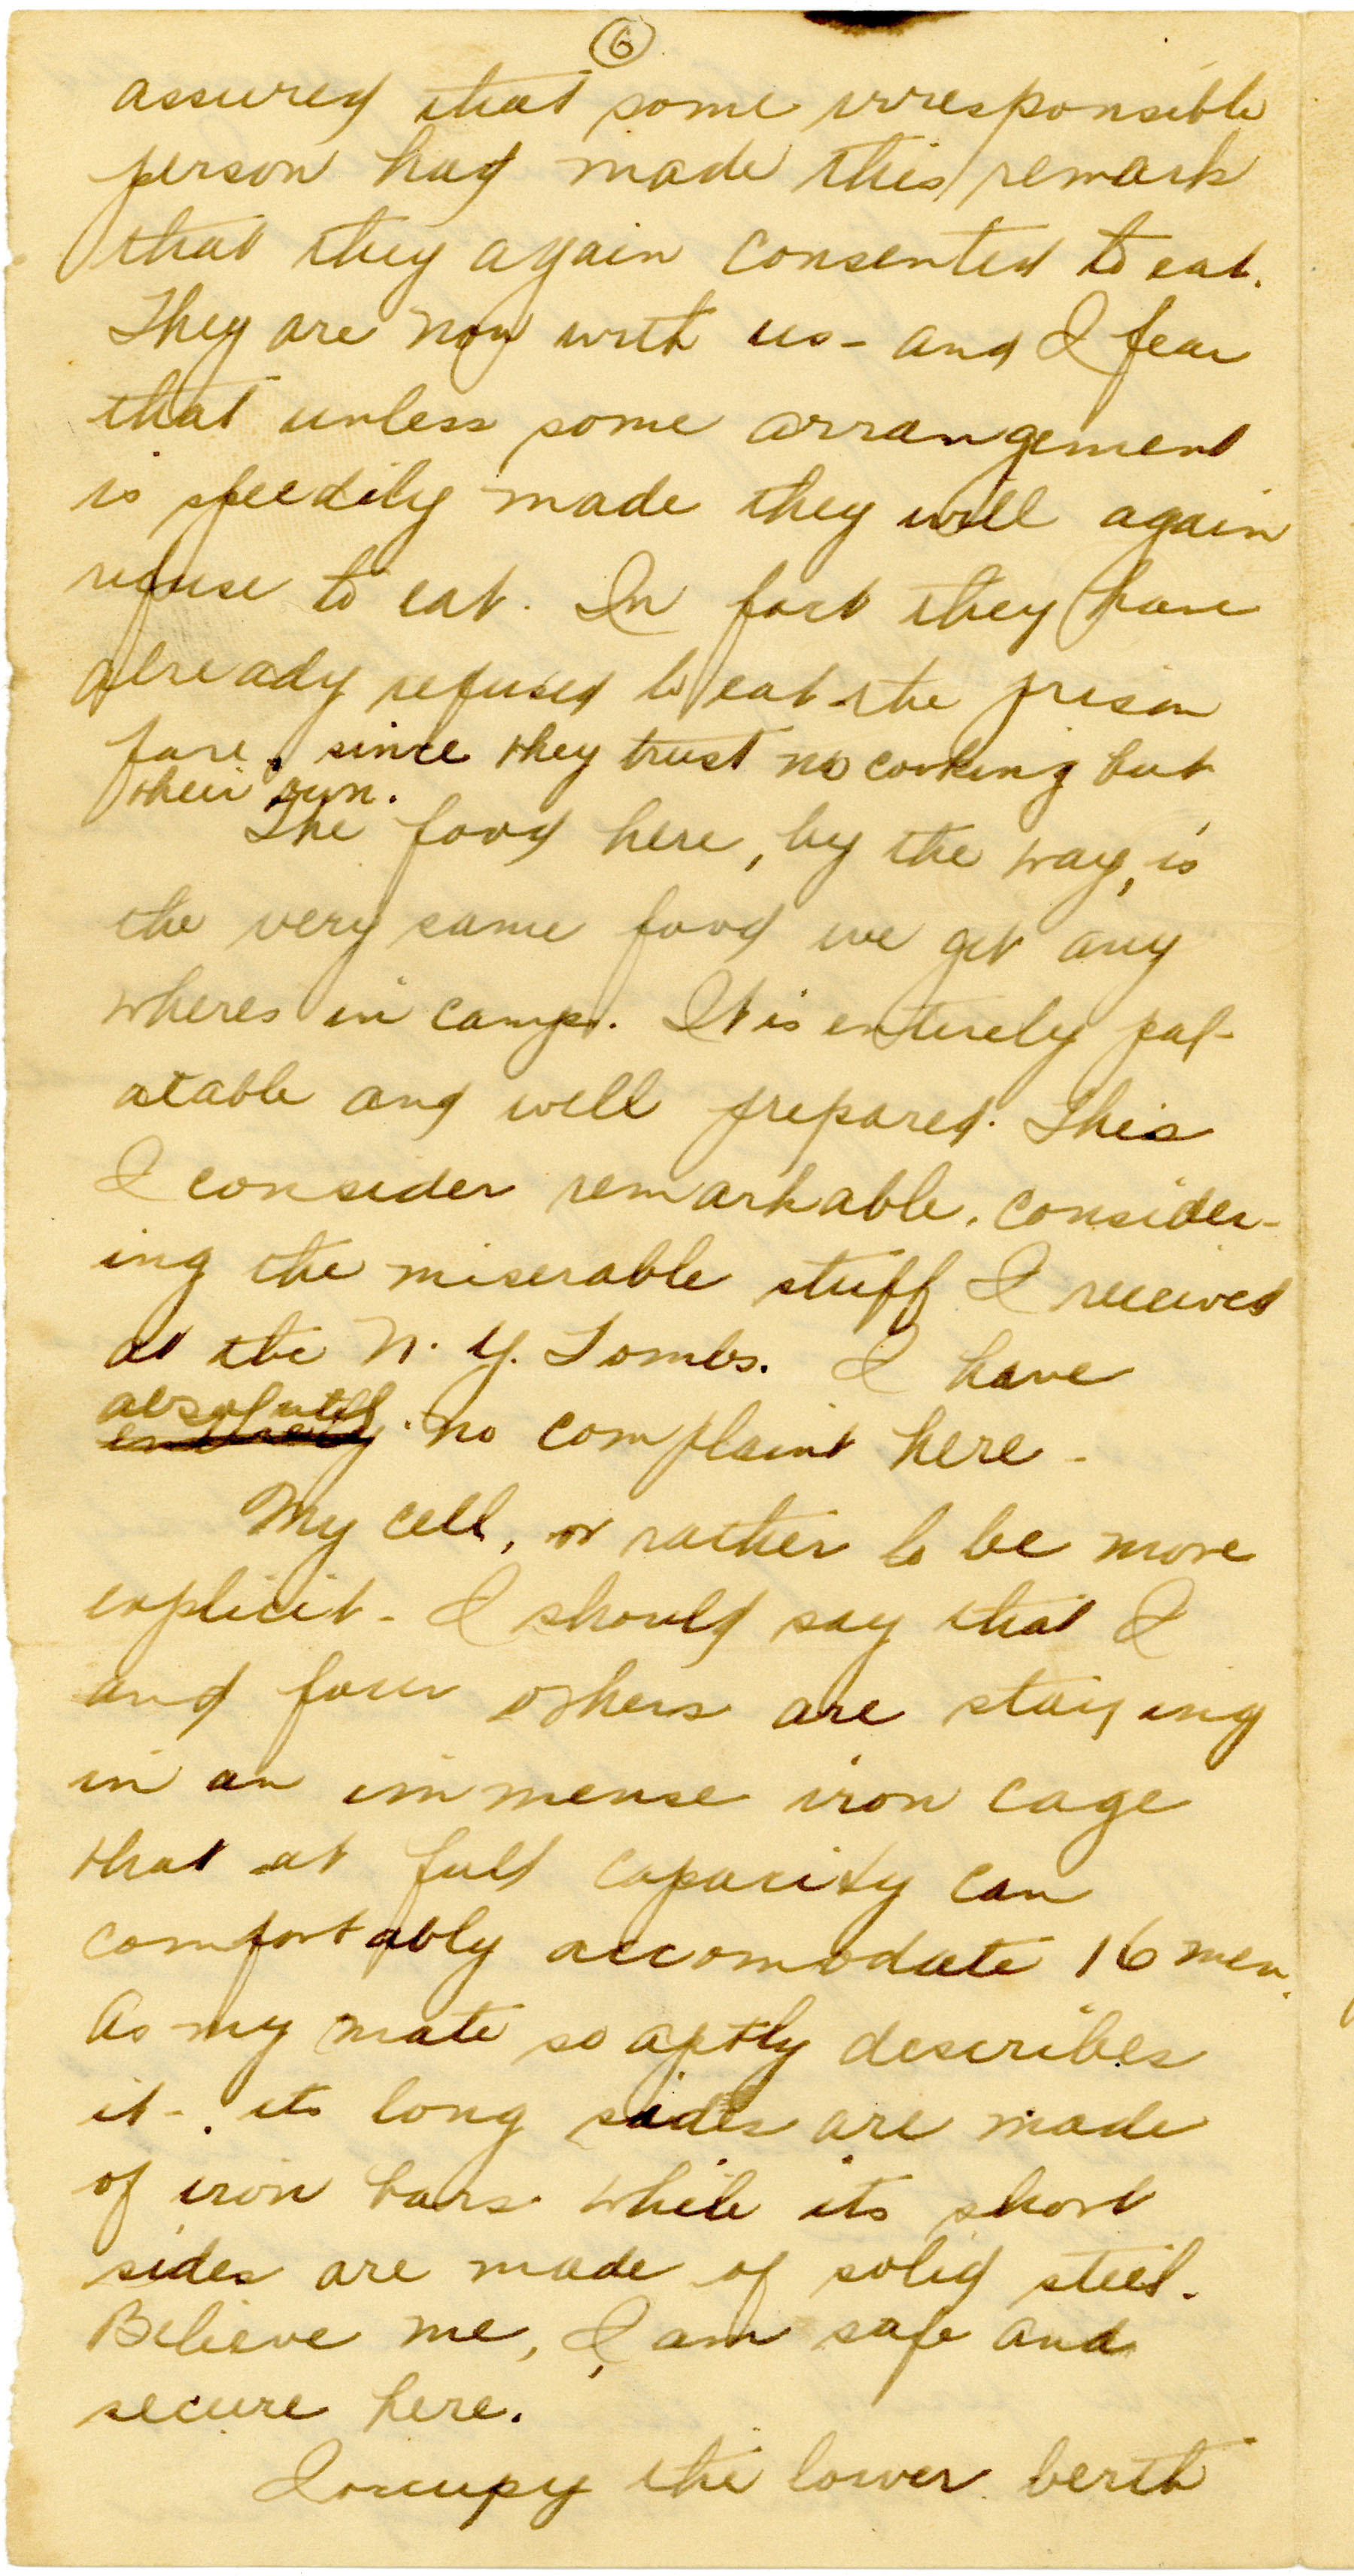 6
assured that some irresponsible
person had made this remark
that they again consented to eat.
They are now with us - and I fear
that unless some arrangement
is speedily made they will again
refuse to eat. In fact they have
already refused to eat the prison
fare, since they trust no cooking but
their own.
The food here, by the way, is
the very same food we get any
wheres in camp. It is entirely pal-
atable and well prepared. This
I consider remarkable, consider-
ing the miserable stuff I received
at the N. Y. Tombs. I have
absolutely
entirely no complaint here -
My cell, or rather to be more
explicit - I should say that I
and four others are staying
in an immense iron cage
that at full capacity can
comfortably accomodate 16 men.
As my mate so aptly describes
it - its long sides are made
of iron bars while its short
sides are made of solid steel.
Believe me, I am safe and
secure here.
I occupy the lower berth